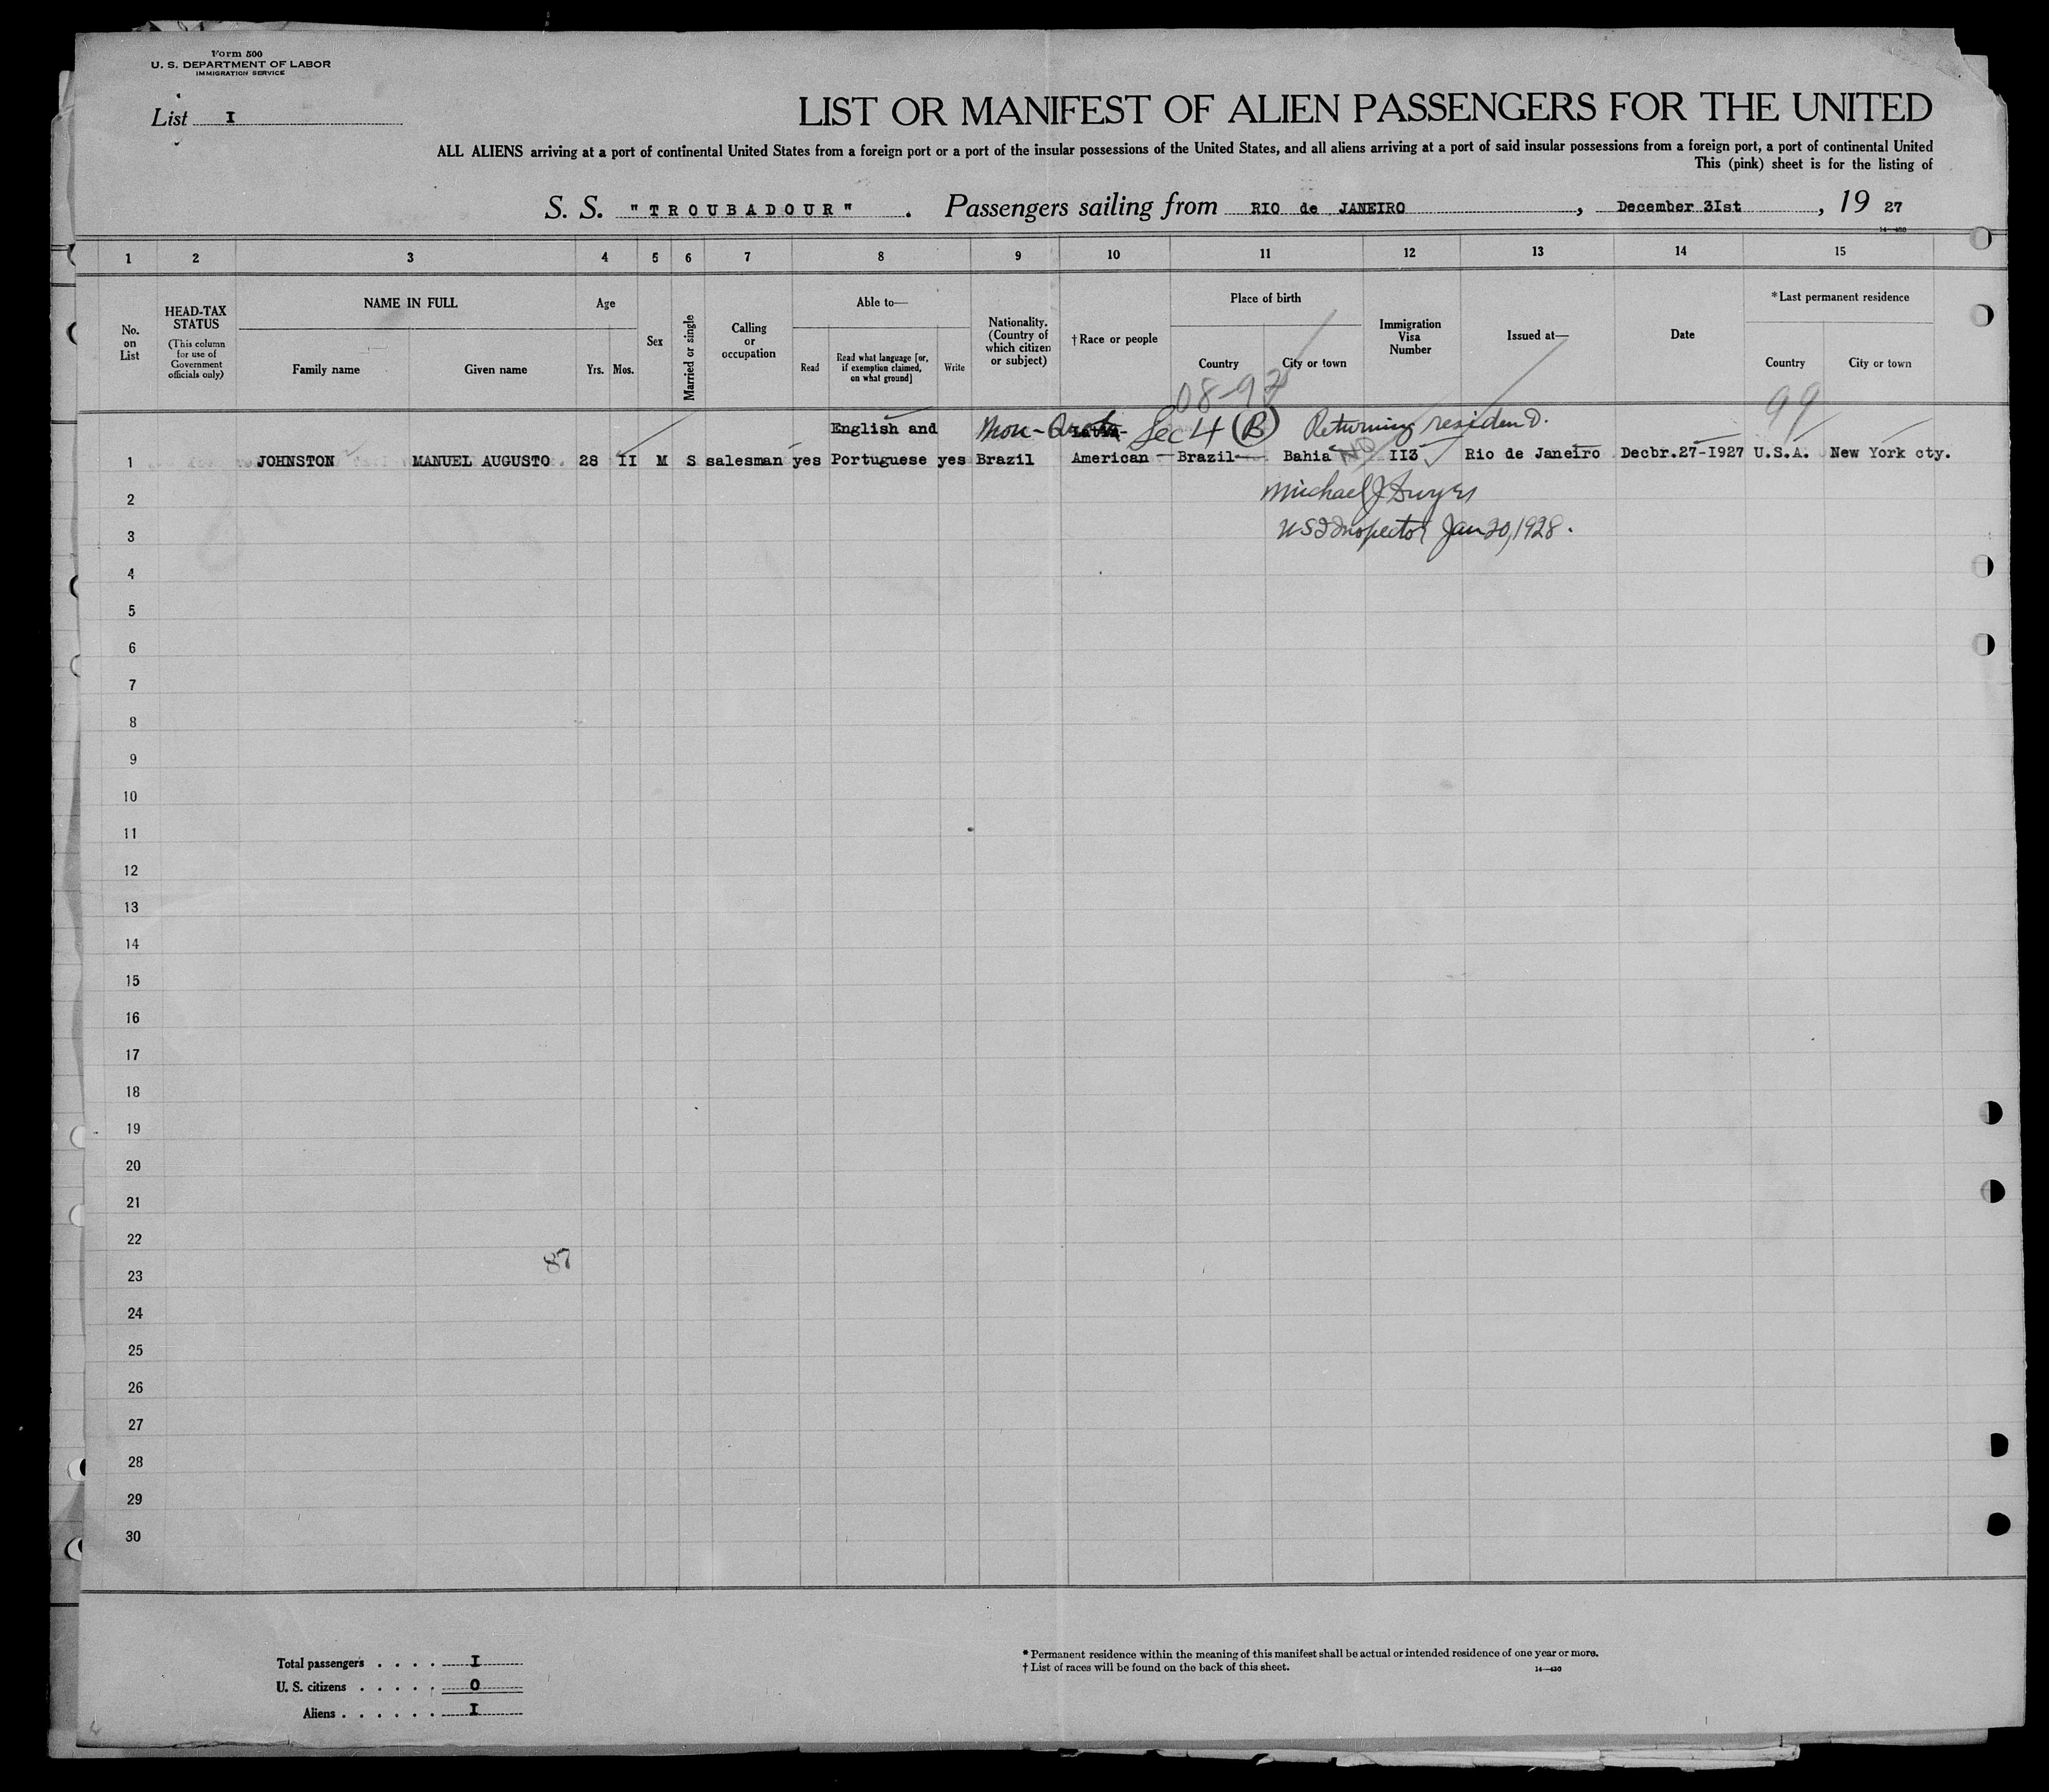 Form 500
U. S. DEPARTMENT OF LABOR
IMMIGRATION SERVICE
List I
LIST OR MANIFEST OF ALIEN PASSENGERS FOR THE UNITED
ALL ALIENS arriving at a port of continental United States from a foreign port or a port of the insular possessions of the United States, and all aliens arriving at a port of said insular possessions from a foreign port, a port of continental United
This (pink) sheet is for the listing of
S. S. "TROUBADOUR" . Passengers sailing from RIO de JANEIRO , December 3Ist , 19 27
14—430
1 2 3 4 5 6 7 8 9 10 11 12 13 14 15
No. on List
HEAD-TAX STATUS (This column for use of Government officials only)
NAME IN FULL
Family name Given name
Age
Yrs. Mos.
Sex
Married or single
Calling or occupation
Able to—
Read
Read what language [or, if exemption claimed, on what ground]
Write
Nationality. (Country of which citizen or subject)
† Race or people
Place of birth
Country City or town
Immigration Visa Number
Issued at—
Date
*Last permanent residence
Country City or town
08-92 99
English and Non-Quota Latin- Sec 4 (B) Returning resident.
1 JOHNSTON MANUEL AUGUSTO 28 II M S salesman yes Portuguese yes Brazil American Brazil Bahia NO II3 Rio de Janeiro Decbr.27-I927 U.S.A. New York cty.
2 Michael J Dwyer
3 US Inspector Jan 20, 1928.
4
5
6
7
8
9
10
11
12
13
14
15
16
17
18
19
20
21
22
87
23
24
25
26
27
28
29
30
Total passengers . . . . I
U. S. citizens . . . . . 0
Aliens . . . . . . I
* Permanent residence within the meaning of this manifest shall be actual or intended residence of one year or more.
† List of races will be found on the back of this sheet.
14—430